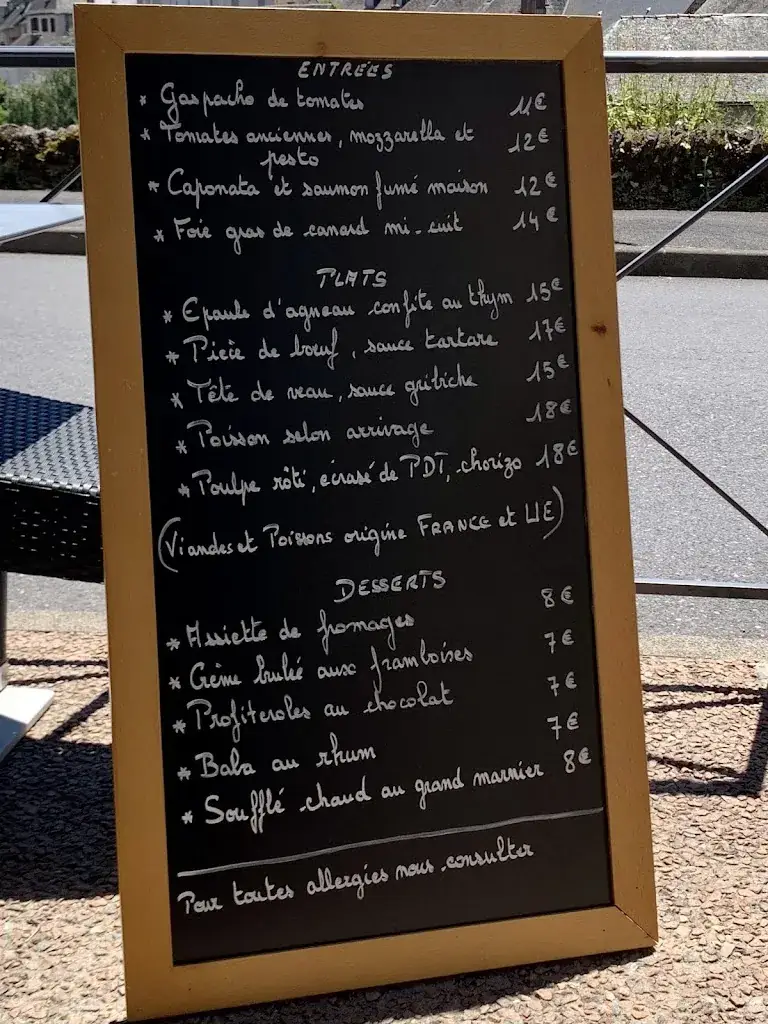 ENTRÉES
* Gaspacho de tomates 11€
* Tomates anciennes, mozzarella et 12€
pesto
* Caponata et saumon fumé maison 12€
* Foie gras de canard mi-cuit 14€
PLATS
* Epaule d'agneau confite au thym 15€
* Pièce de bœuf, sauce tartare 17€
* Tête de veau, sauce gribiche 15€
* Poisson selon arrivage 18€
* Poulpe rôti, écrasé de PDT, chorizo 18€
(Viandes et Poissons origine FRANCE et UE)
DESSERTS
* Assiette de fromages 8€
* Crème brulée aux framboises 7€
* Profiteroles au chocolat 7€
* Baba au rhum 7€
* Soufflé chaud au grand marnier 8€
Pour toutes allergies nous consulter